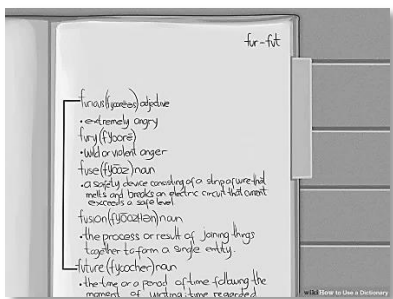 fur-fut
furious(fyooreəs) adjective
• extremely angry
fury(fyoorē)
• wild or violent anger
fuse(fyooz) noun
• a safety device consisting of a strip of wire that
melts and breaks an electric circuit that current
exceeds a safe level.
fusion(fyooZHən) noun
• the process or result of joining things
together to form a single entity.
future(fyoocher) noun
• the time or a period of time following the
moment of writing: time regarded
wikiHow to Use a Dictionary